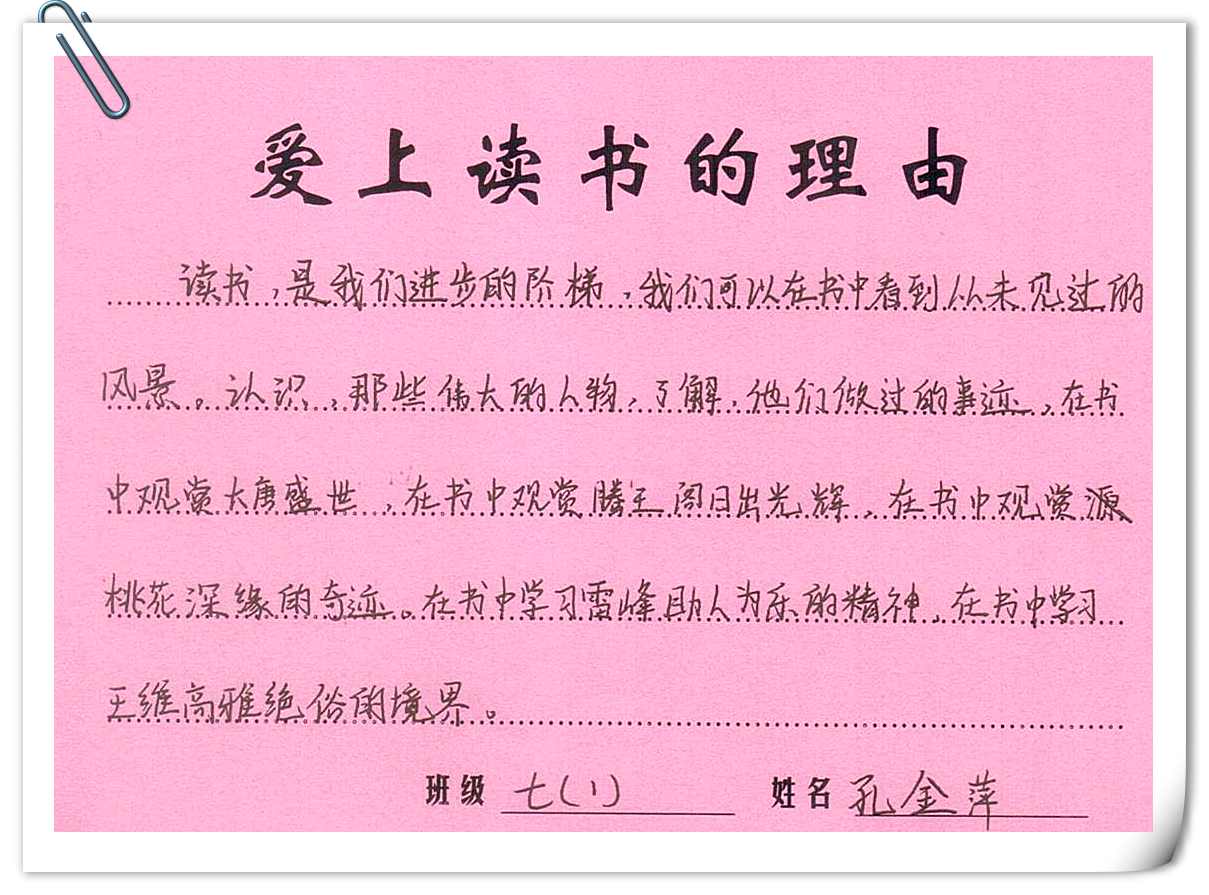 爱上读书的理由
读书，是我们进步的阶梯，我们可以在书中看到从未见过的
风景。认识，那些伟大的人物，了解，他们做过的事迹，在书
中观赏大唐盛世，在书中观赏腾王阁日出光辉，在书中观赏源
桃花深缘的奇迹。在书中学习雷峰助人为乐的精神，在书中学习
王维高雅绝俗的境界。
班级 七(1) 姓名 孔金萍